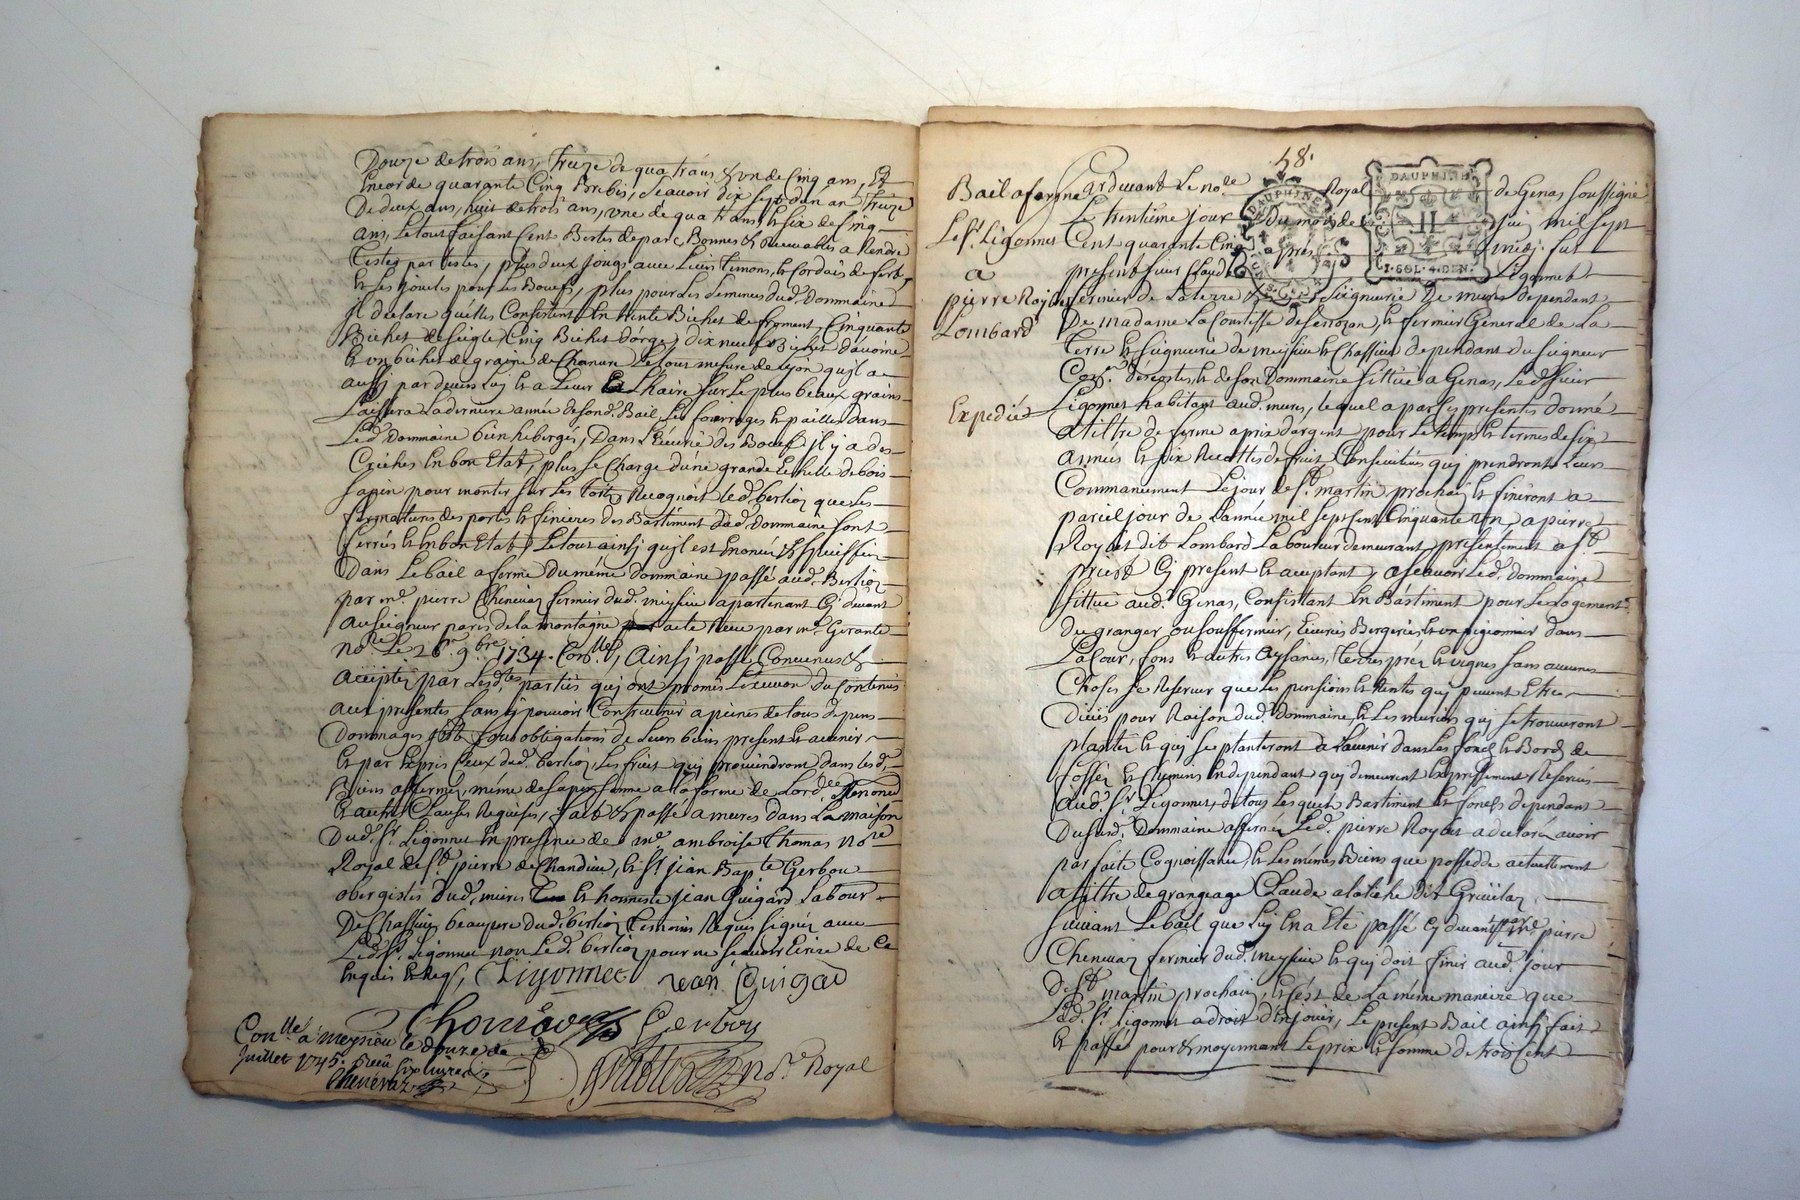 Douze de trois ans, treize de quatrans & un de Cinq ans, Et
Encor de quarante Cinq Brebis, Scauoir dix sept d'un an treize
De deux ans, huit de trois ans, une de quatrans, & six de Cinq
ans, Le tout faisant Cent Bestes de parc, Bonnes & Receuables a Rendre
testes par testes, plus deux Jougs auec Leurs timons, & Cordais de fert,
pour Les Boeufs, plus pour Les Semences dud. Dommaine
il declare qu'elles Consistent En trente Bichet de froment, Cinquante
Bichet de seigle, Cinq Bichet d'orge, dix neuf Bichet d'avoine
& un bichet de graine de Chanure Le tout mesure de Lyon qu'il a
aussi par deuers Luy & a Leuer L'haire Sur Le plus beaux grains
Laissera La derniere année de sond. Bail, Les fourrages & pailles dans
Led. Dommaine bien hebergés, Dans L'Ecurie des Boeufs il y a des
Creches En bon Etat, plus se Charge d'une grande Echelle de bois
sapin pour monter sur Les toits, Recognoit led. berlioz que Les
fermatures des portes & finieres des Bastiment dud. Dommaine sont
ferrés & En bon Etat, Le tout ainsi qu'il est Enoncé &
Dans Le bail a ferme du méme dommaine passé aud. Berlioz
par me. pierre Chenevaz fermier dud. meysieu apartenant Cy deuant
au Seigneur paris de la montagne acte Receu par me. Girante
nore. Le 26e. 9bre. 1734. Conllé, Ainsi passé Conuenus &
acceptez par Lesdtes. parties qui ont promis L'exeuon du Contenus
aux presentes sans y pouvoir Contreuenir a peines de tous depens
Dommages & sous obligations de Leurs biens present & auenir
& par Expres Ceux dud. berlioz, Les fruit qui prouiendront dans lesd.
Biens affermez, méme de sa personne a la forme de L'ordce. Renoncé
& autre Clauses Requises, fait & passé a mures dans La maison
Dud. Sr. Ligonnet En presence de me. ambroise thomas nore
Royal de St. pierre de Chandieu, & Sr. jean Bapte Gerbou
obergistes dud. mures & honneste jean Guigard Labour.
De Chassieu beaupere dud. berlioz temoins Requis signez auec
Led. Sr. Ligonnet non Led. berlioz pour ne scauoir Ecrire de Ce
Enquis & Reqs,
Ligonnet Jean Guigard
Thomas Gerbou
Conllé a meysieu le douze de
Juillet 1745. Receu six livres
Chenevaz
Nore. Royal
48.
DAUPHINE
DAUPHINE
1. SOL. 4. DEN.
Bail a ferme
Le Sr. Ligonnet
a
pierre Roybet
Lombard
Expediée
Pardeuant Le nore Royal de Genas soussigné
Le trentiéme jour Du mois de Juin mil Sept
Cent quarante Cinq apres midy fut
present sieur Claude Ligonnet
fermier de La terre & Seigneurie de mures dependant
De madame La Comtesse de Serrozan, & fermier General de La
terre & seigneurie de meysieu & Chassieu dependant du seigneur
& de son Dommaine sittué a Genas, Led. sieur
Ligonnet habitant aud. mures, lequel a par Ces presentes donné
a tiltre de ferme a prix d'argent pour Le temps & termes de six
années & six Recoltes de fruit Consecutiues qui prendront Leurs
Commancement Le jour de St. martin prochain & finiront a
pareil jour de L'année mil sept Cent Cinquante un, a pierre
Roybet dit Lombard Laboureur demeurant presentement a St.
priest Cy present & acceptant, a scauoir Led. Dommaine
sittué aud. Genas, Consistant En Bastiment pour Le logement
du granger ou sousfermier, Ecuries Bergeries & un pigeonnier dans
La Cour, fons & autres aysances, terres prez & vignes sans aucunes
Choses se Reseruer que Les pensions & Rentes qui peuuent Etre
Deües pour Raison dud. Dommaine, & Les muriers qui se trouueront
planter & qui se planteront a L'auenir dans Les fonds & Bords de
fossez & Chemins En dependant qui demeurent Expressement Reserués
aud. Sr. Ligonnet, de tous Lesquels Bastiment & fonds dependant
Dususd. Dommaine affermés Led. pierre Roybet a declaré auoir
parfaite Cognoissance, & Les mémes Biens que possedde actuellement
a tiltre de grangeage Claude dit
suiuant Le bail que Luy En a Eté passé Cy deuant par me. pierre
Chenevaz fermier dud. meysieu & qui doit finir aud. jour
De St. martin prochain, & C'est de La méme maniere que
Led. Sr. Ligonnet a droit d'En jouir, Le present Bail ainsi fait
& passé pour & moyennant Le prix & somme de trois Cent